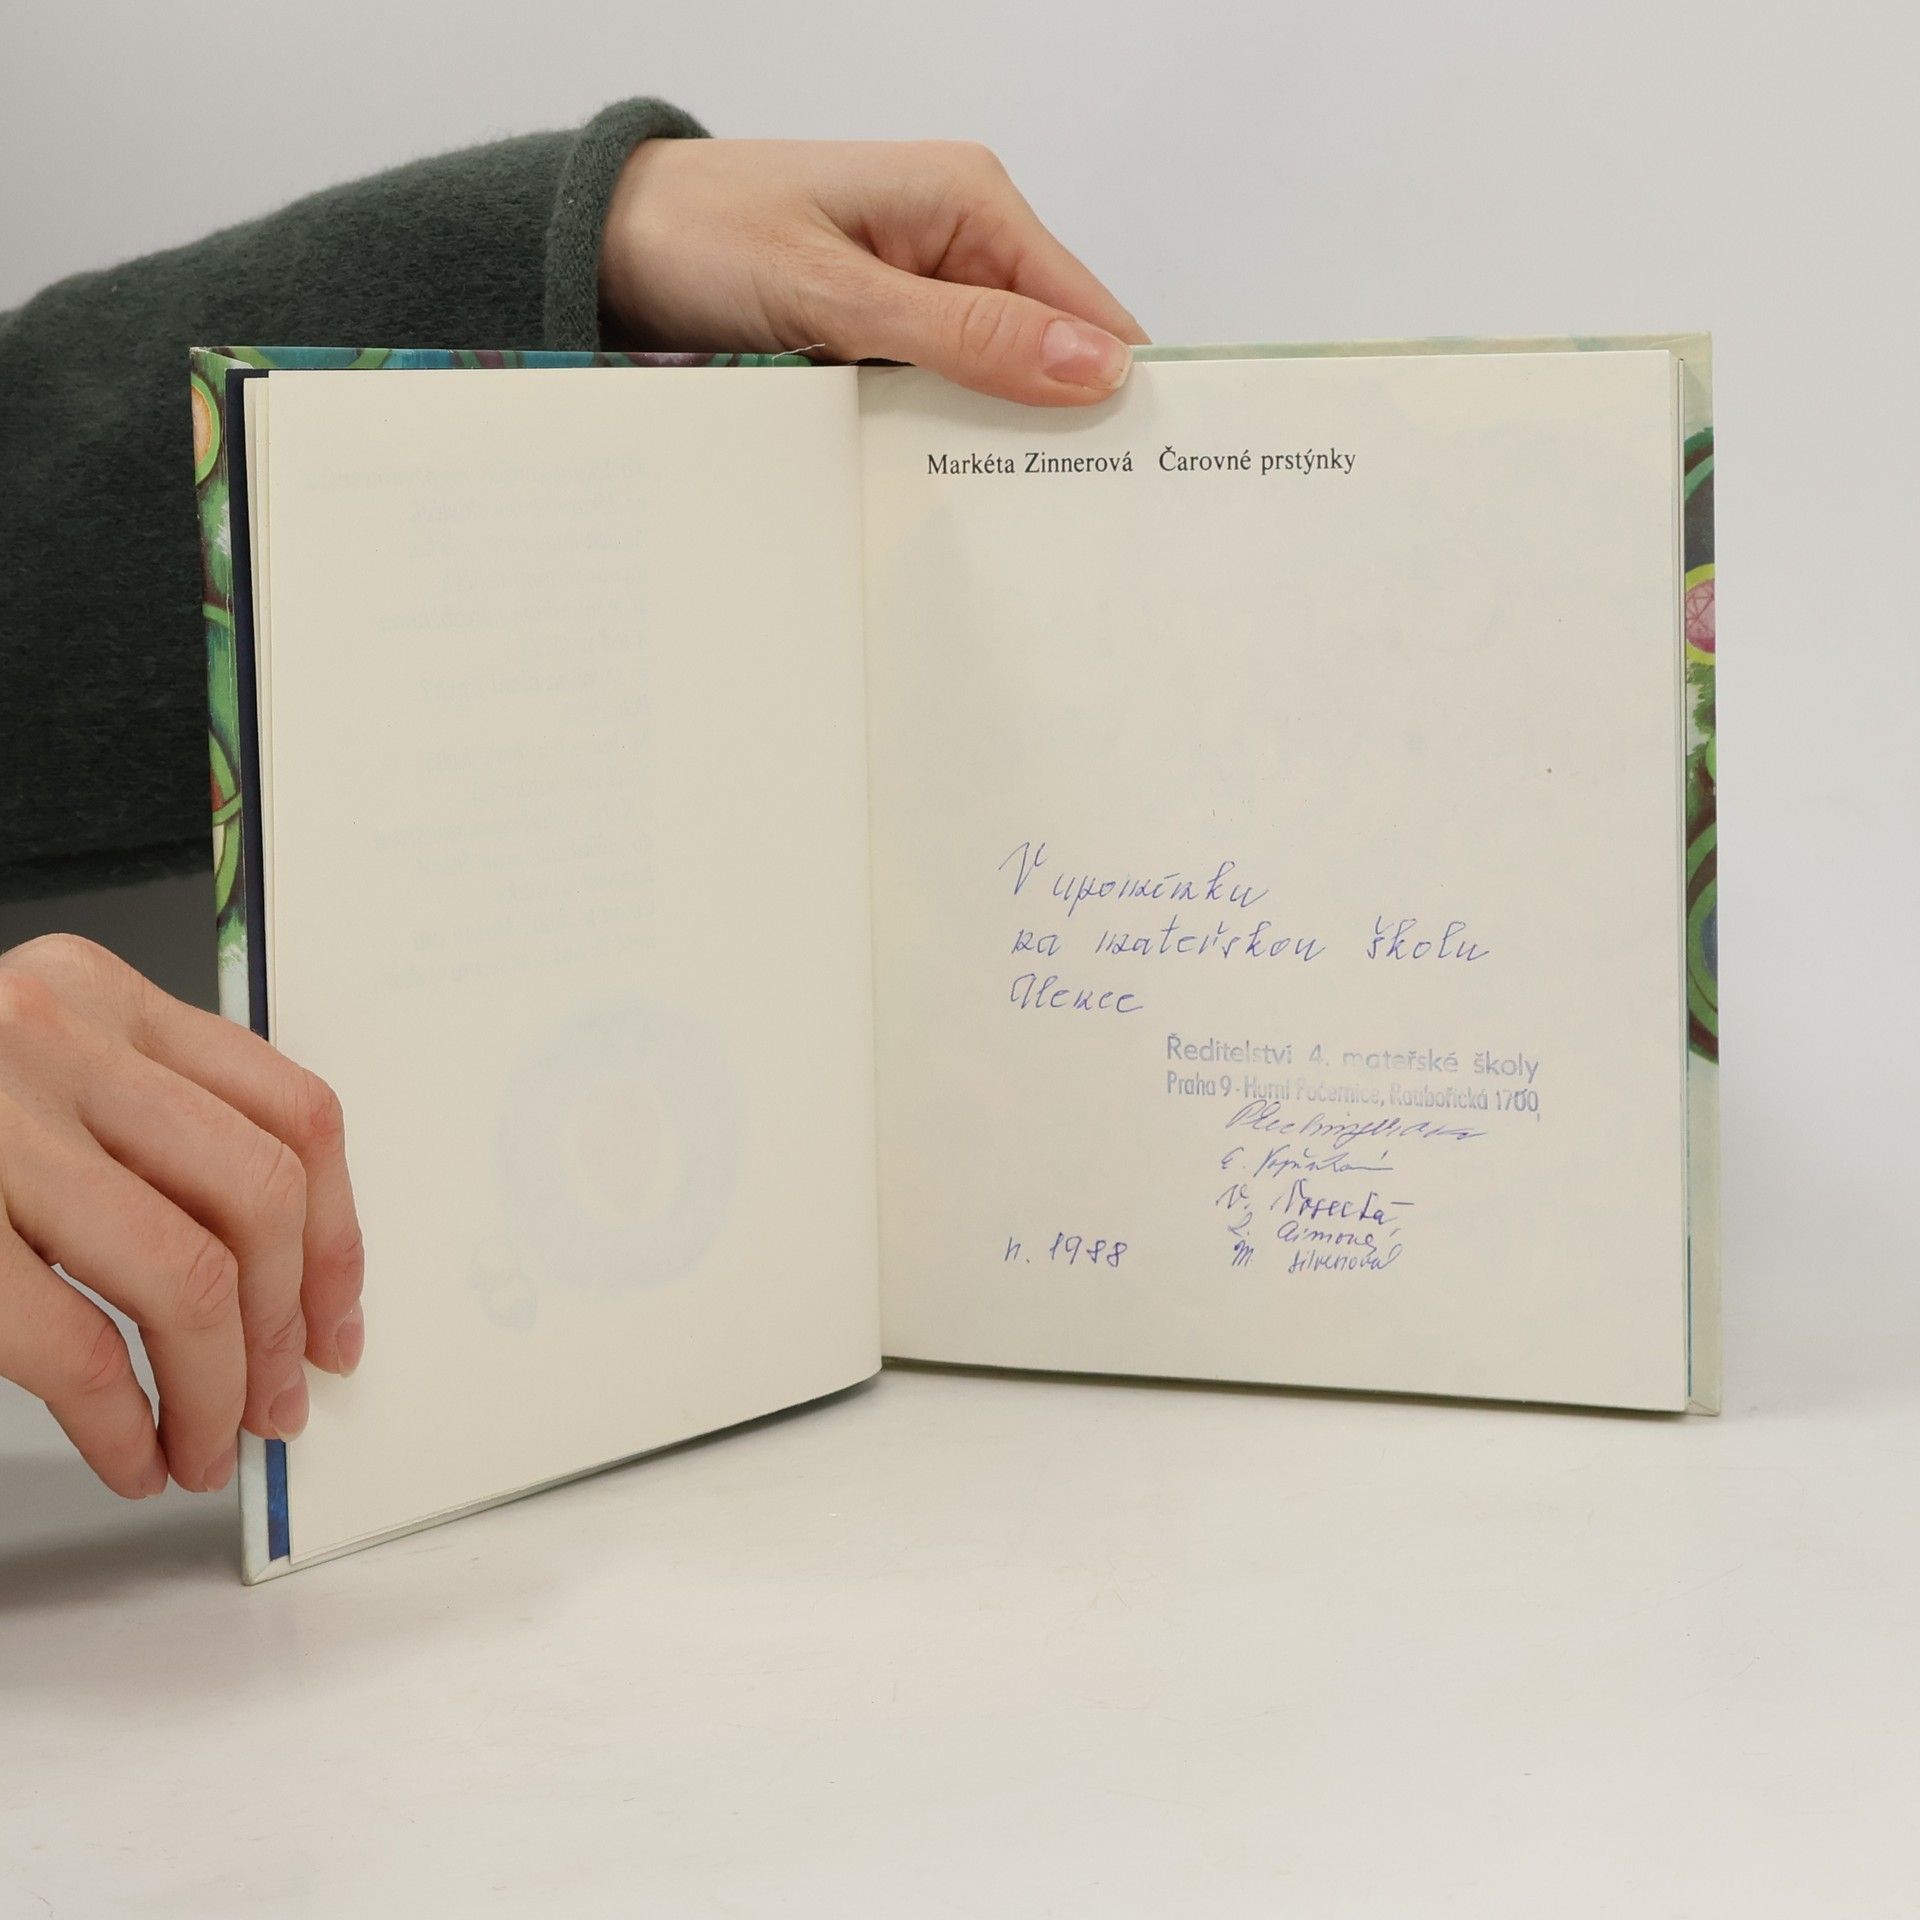 Markéta Zinnerová Čarovné prstýnky
V upomínku
na mateřskou školu
Alence
Ředitelství 4. mateřské školy
Praha 9 - Horní Počernice, Ratibořická 1700,
E.
V. Nosecká
L.
M.
h. 1988